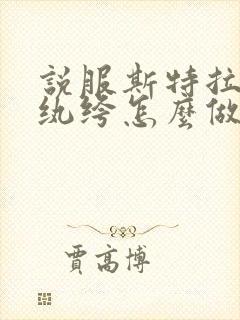 説服斯特拉
纨绔怎麼做
賈高博